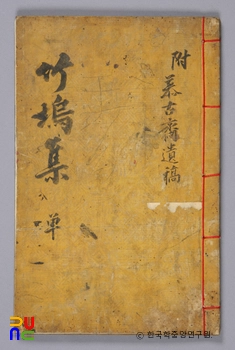 附 慕古齋遺稿
竹塢集 単
© 한국학중앙연구원